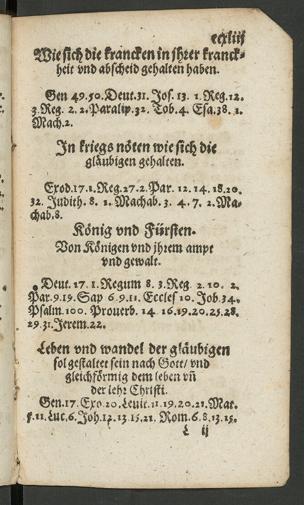 ccxliij
Wie sich die krancken in jhrer kranck-
heit vnd abscheid gehalten haben.
Gen 49.50. Deut.31. Jos. 13. 1. Reg.12.
3. Reg. 2. 2. Paralip. 32. Tob.4. Esa.38. 1.
Mach.2.
In kriegs nöten wie sich die
gläubigen gehalten.
Exod.17.1. Reg.27.2. Par. 12. 14. 18.20.
32. Judith. 8. 1. Machab. 3. 4. 7. 2. Ma-
chab.8.
König vnd Fürsten.
Von Königen vnd jhrem ampt
vnd gewalt.
Deut. 17. 1. Regum 8. 3. Reg. 2. 10. 2.
Par.9.19. Sap 6.9.11. Eccles 10. Job.34.
Psalm.100. Prouerb. 14 16.19.20.25.28.
29.31. Jerem.22.
Leben vnd wandel der gläubigen
sol gestaltet sein nach Gott/ vnd
gleichförmig dem leben vñ
der lehr Christi.
Gen.17. Exo.20. Leuit.11.19.20.21. Mat.
5.11. Luc.6. Joh.12.13 15.21. Rom.6.8.13.15.
ij